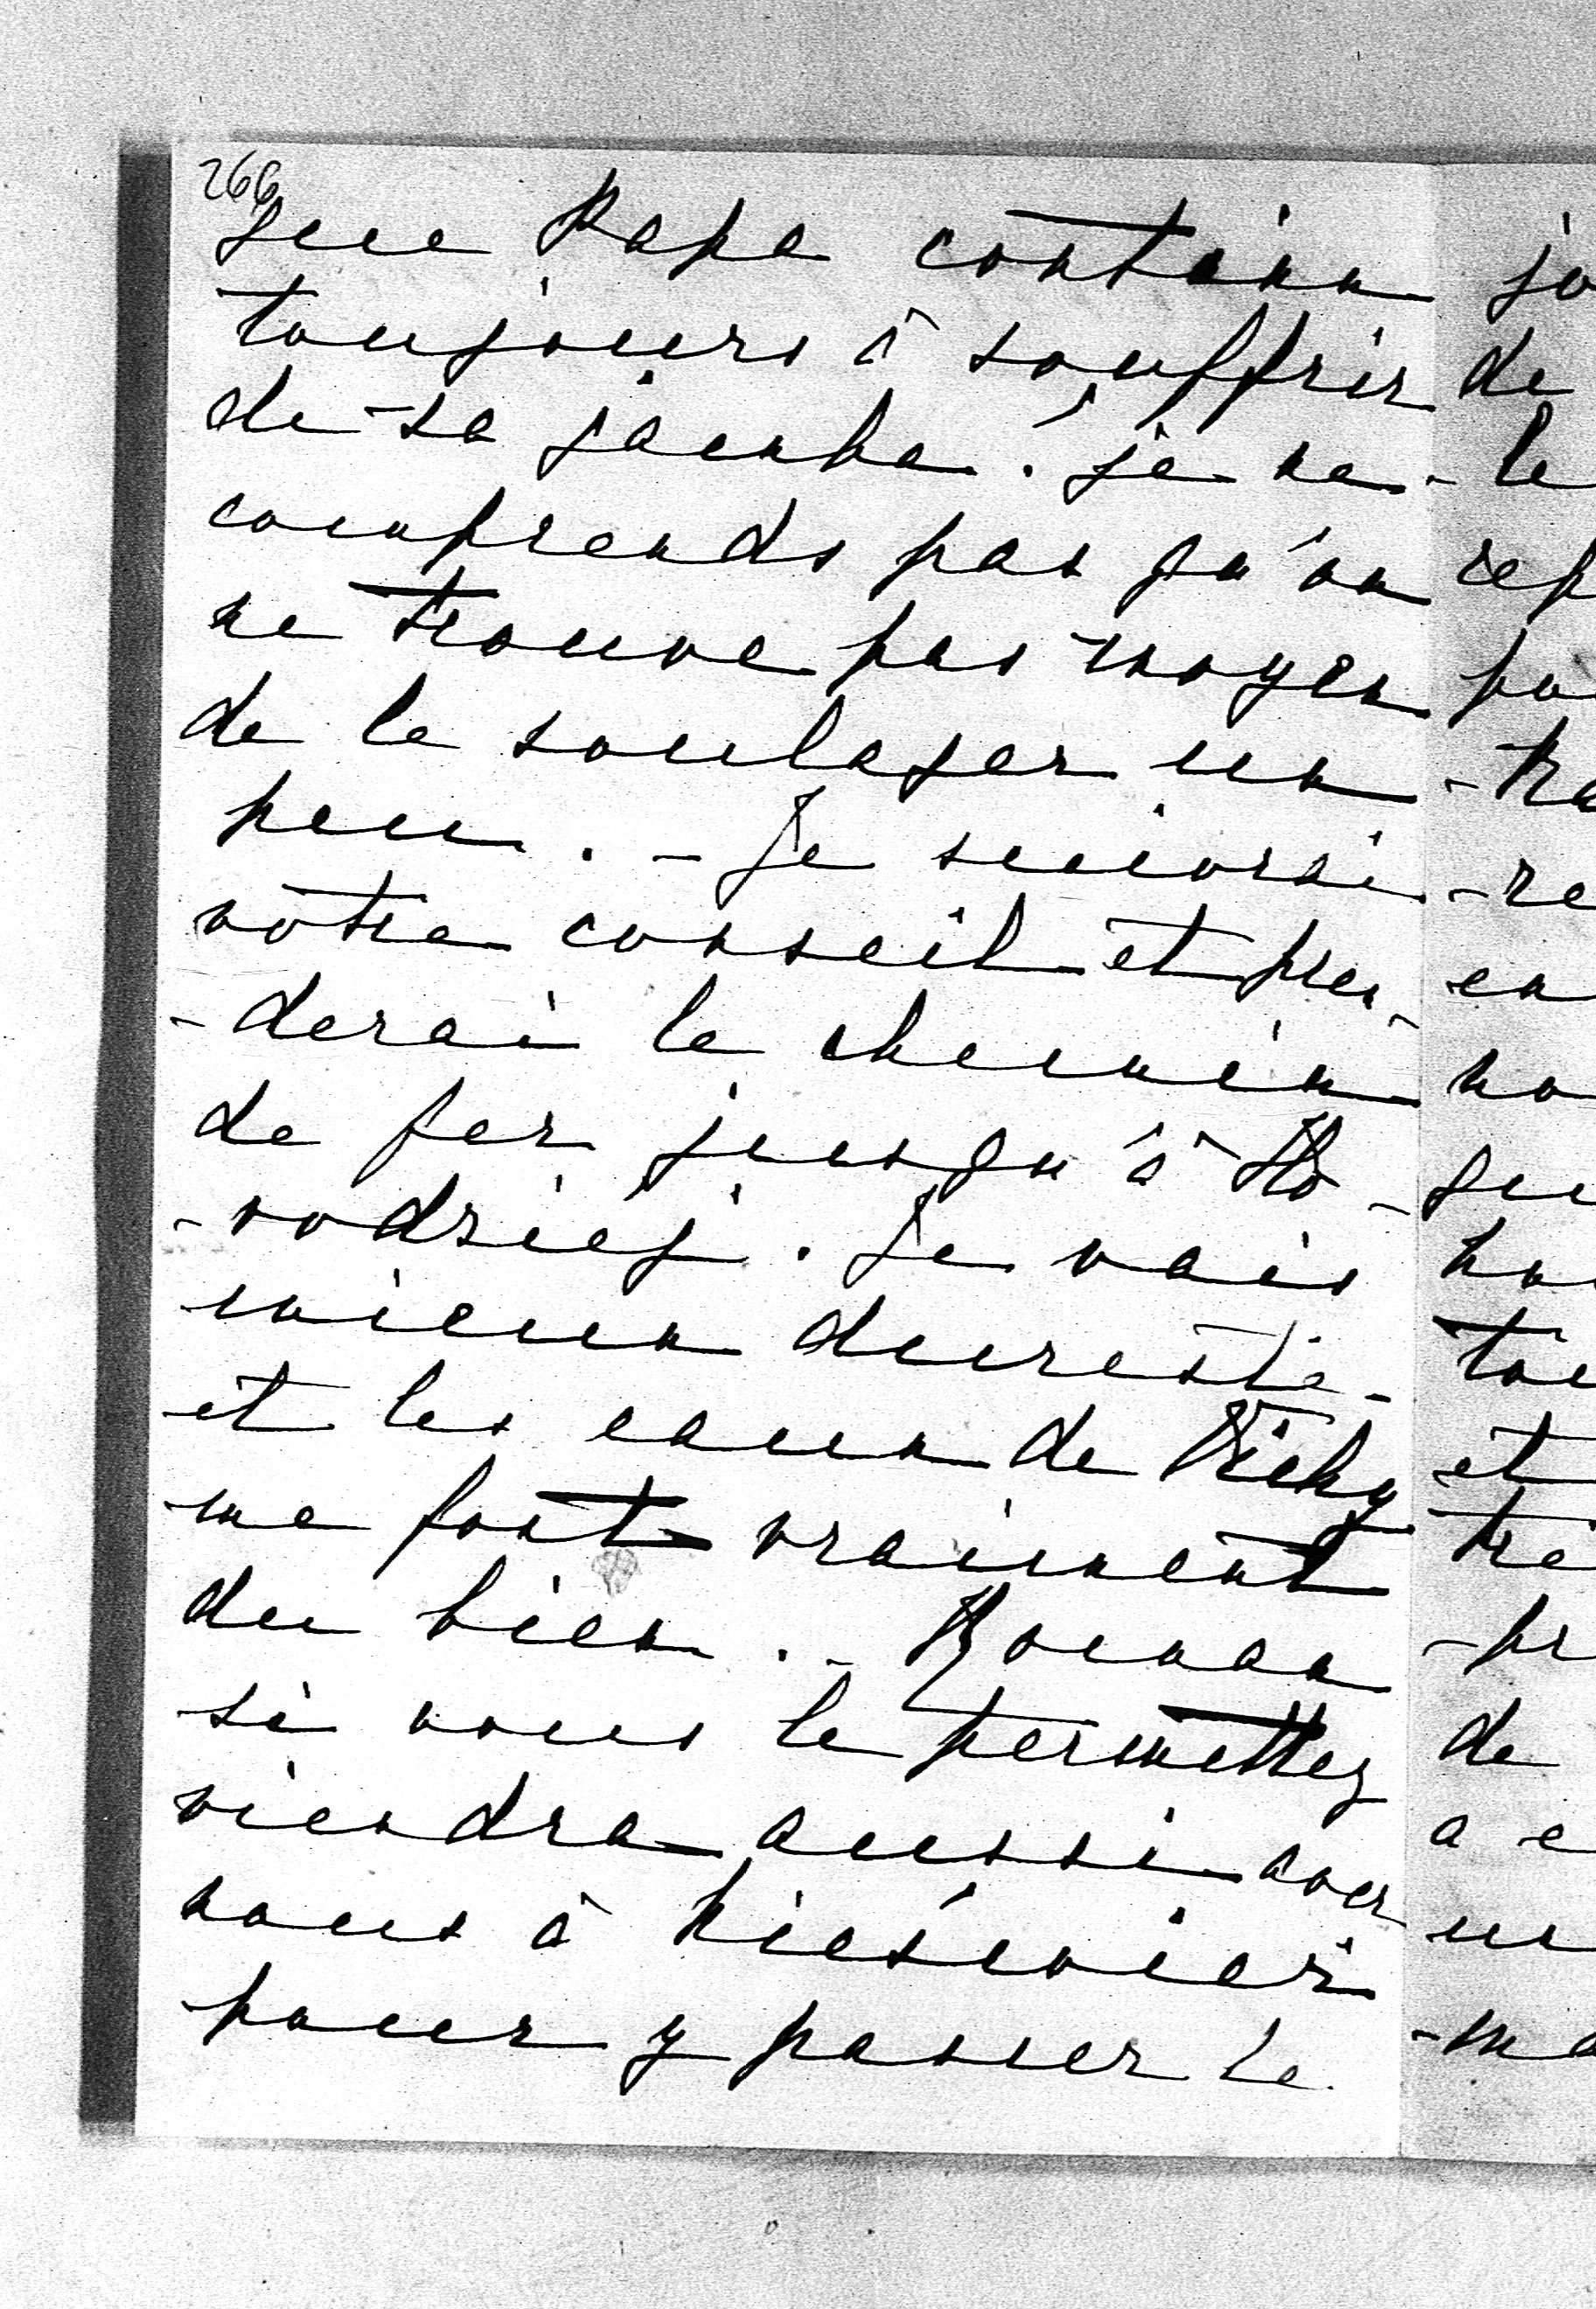 266
que Papa continu
toujours à souffrir
de sa jambe. je ne
comprends pas qu'on
ne trouve pas moyen
de le soulager un
peu. - Je suivrai
vôtre conseil et pren-
-derai le chemin
de fer jusqu'à Ho-
-rodziej. Je vais
mieux dureste
et les eaux de Vichy
me font vraiment
du bien. - Roman
si vous le permettez
viendra aussi avec
nous à Nieśwież
pour y passer le
jo
de
le
rep
po
- tra
- re
en
no
qu
et
tre
- pr
de
a e
un
- ma